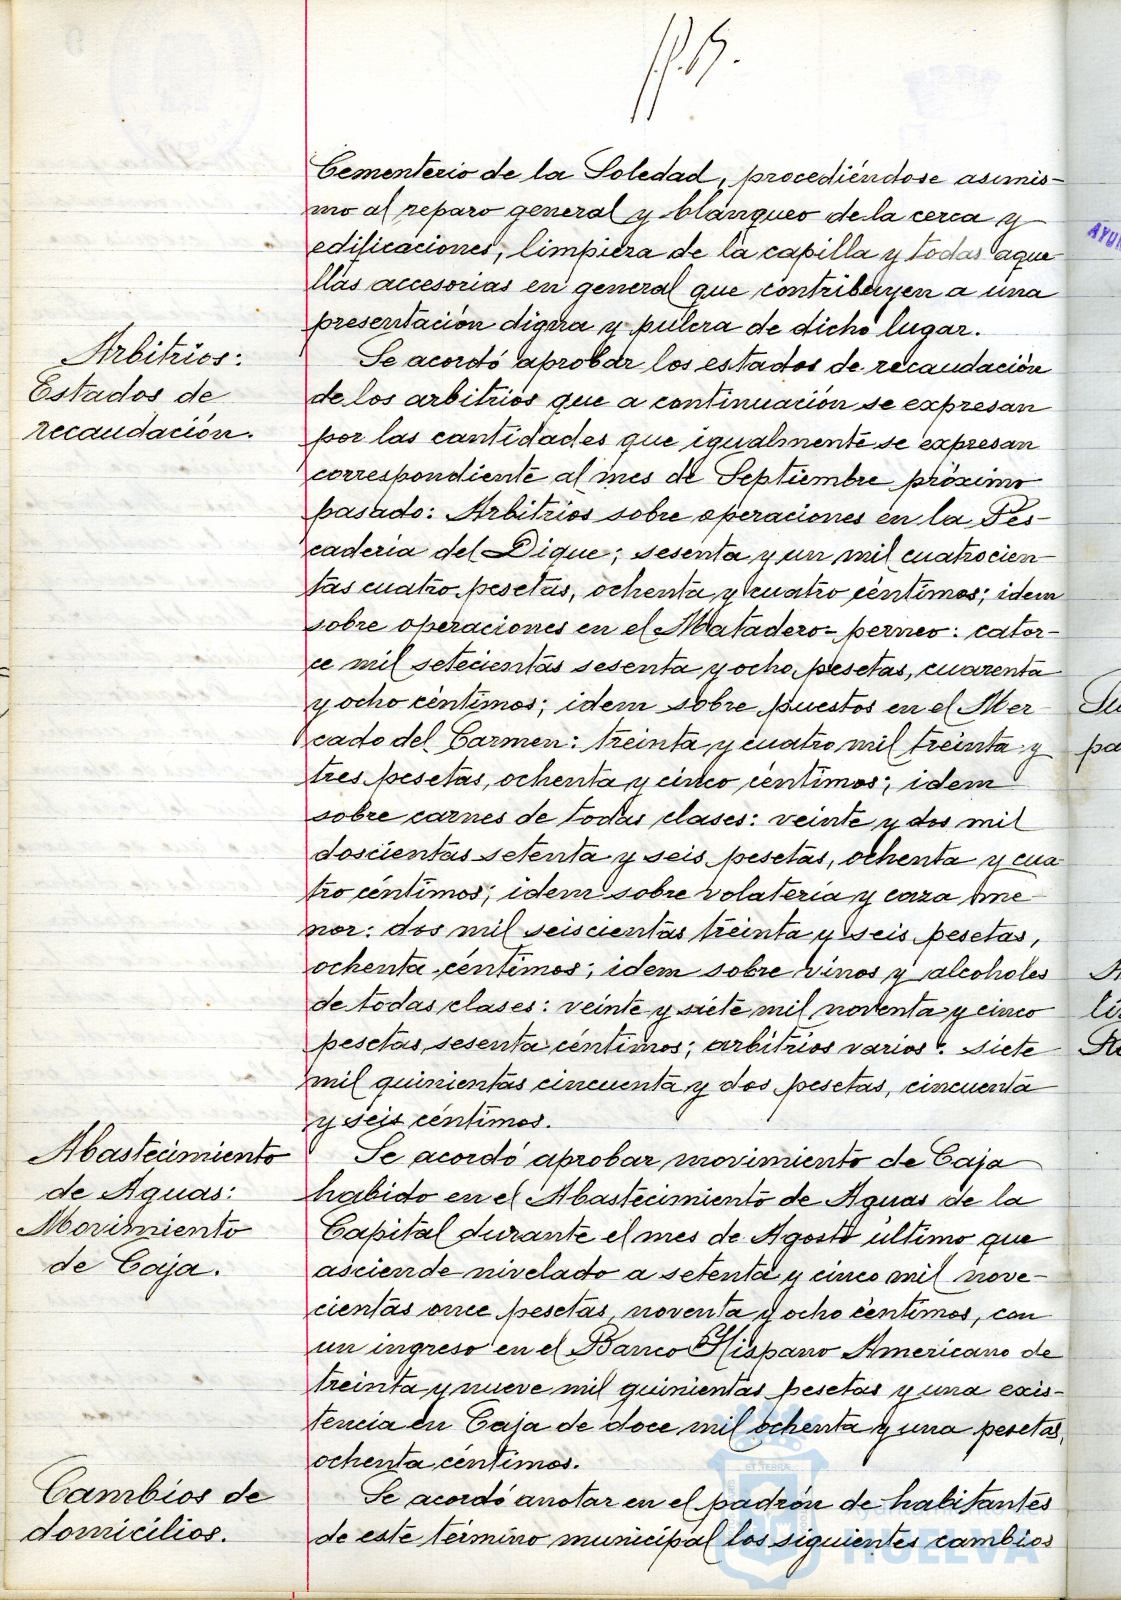 Cementerio de la Soledad, procediéndose asimis-
mo al reparo general y blanqueo de la cerca y
edificaciones, limpieza de la capilla y todas aque
llas accesorias en general que contribuyen a una
presentación digna y pulcra de dicho lugar.
Arbitrios:
Estados de
recaudación.
Se acordó aprobar los estados de recaudación
de los arbitrios que a continuación se expresan
por las cantidades que igualmente se expresan
correspondiente al mes de Septiembre próximo
pasado: Arbitrios sobre operaciones en la Pes-
cadería del Dique; sesenta y un mil cuatrocien-
tas cuatro pesetas, ochenta y cuatro céntimos; idem
sobre operaciones en el Matadero-perneo: cator-
ce mil setecientas sesenta y ocho pesetas, cuarenta
y ocho céntimos; idem sobre puestos en el Mer-
cado del Carmen: treinta y cuatro mil treinta y
tres pesetas, ochenta y cinco céntimos; idem
sobre carnes de todas clases: veinte y dos mil
doscientas setenta y seis pesetas, ochenta y cua-
tro céntimos; idem sobre volatería y caza me-
nor: dos mil seiscientas treinta y seis pesetas,
ochenta céntimos; idem sobre vinos y alcoholes
de todas clases: veinte y siete mil noventa y cinco
pesetas, sesenta céntimos; arbitrios varios: siete
mil quinientas cincuenta y dos pesetas, cincuenta
y seis céntimos.
Abastecimiento
de Aguas:
Movimiento
de Caja.
Se acordó aprobar movimiento de Caja
habido en el Abastecimiento de Aguas de la
Capital durante el mes de Agosto último que
asciende nivelado a setenta y cinco mil nove-
cientas once pesetas, noventa y ocho céntimos, con
un ingreso en el Banco Hispano Americano de
treinta y nueve mil quinientas pesetas y una exis-
tencia en Caja de doce mil ochenta y una pesetas,
ochenta céntimos.
Cambios de
domicilios.
Se acordó anotar en el padrón de habitantes
de este término municipal los siguientes cambios
HUELVA